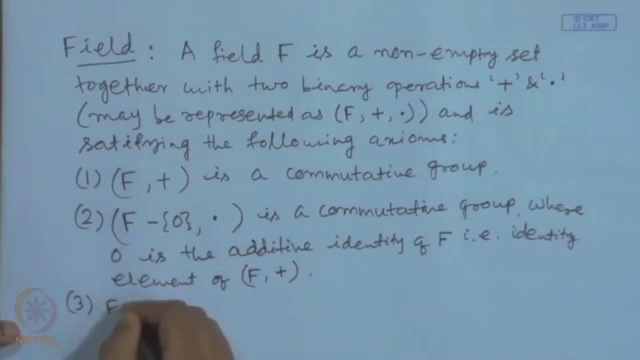 © CET
I.I.T. KGP
Field : A field F is a non-empty set
together with two binary operations '+' & '·'
(may be represented as (F, +, ·)) and is
satisfying the following axioms:
(1) (F, +) is a commutative group.
(2) (F - {0}, ·) is a commutative group, where
0 is the additive identity of F i.e. identity
element of (F, +).
(3) F
NPTEL